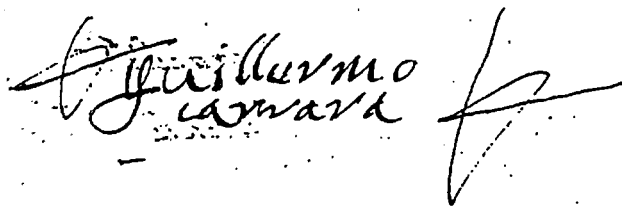 guillermo
carvara